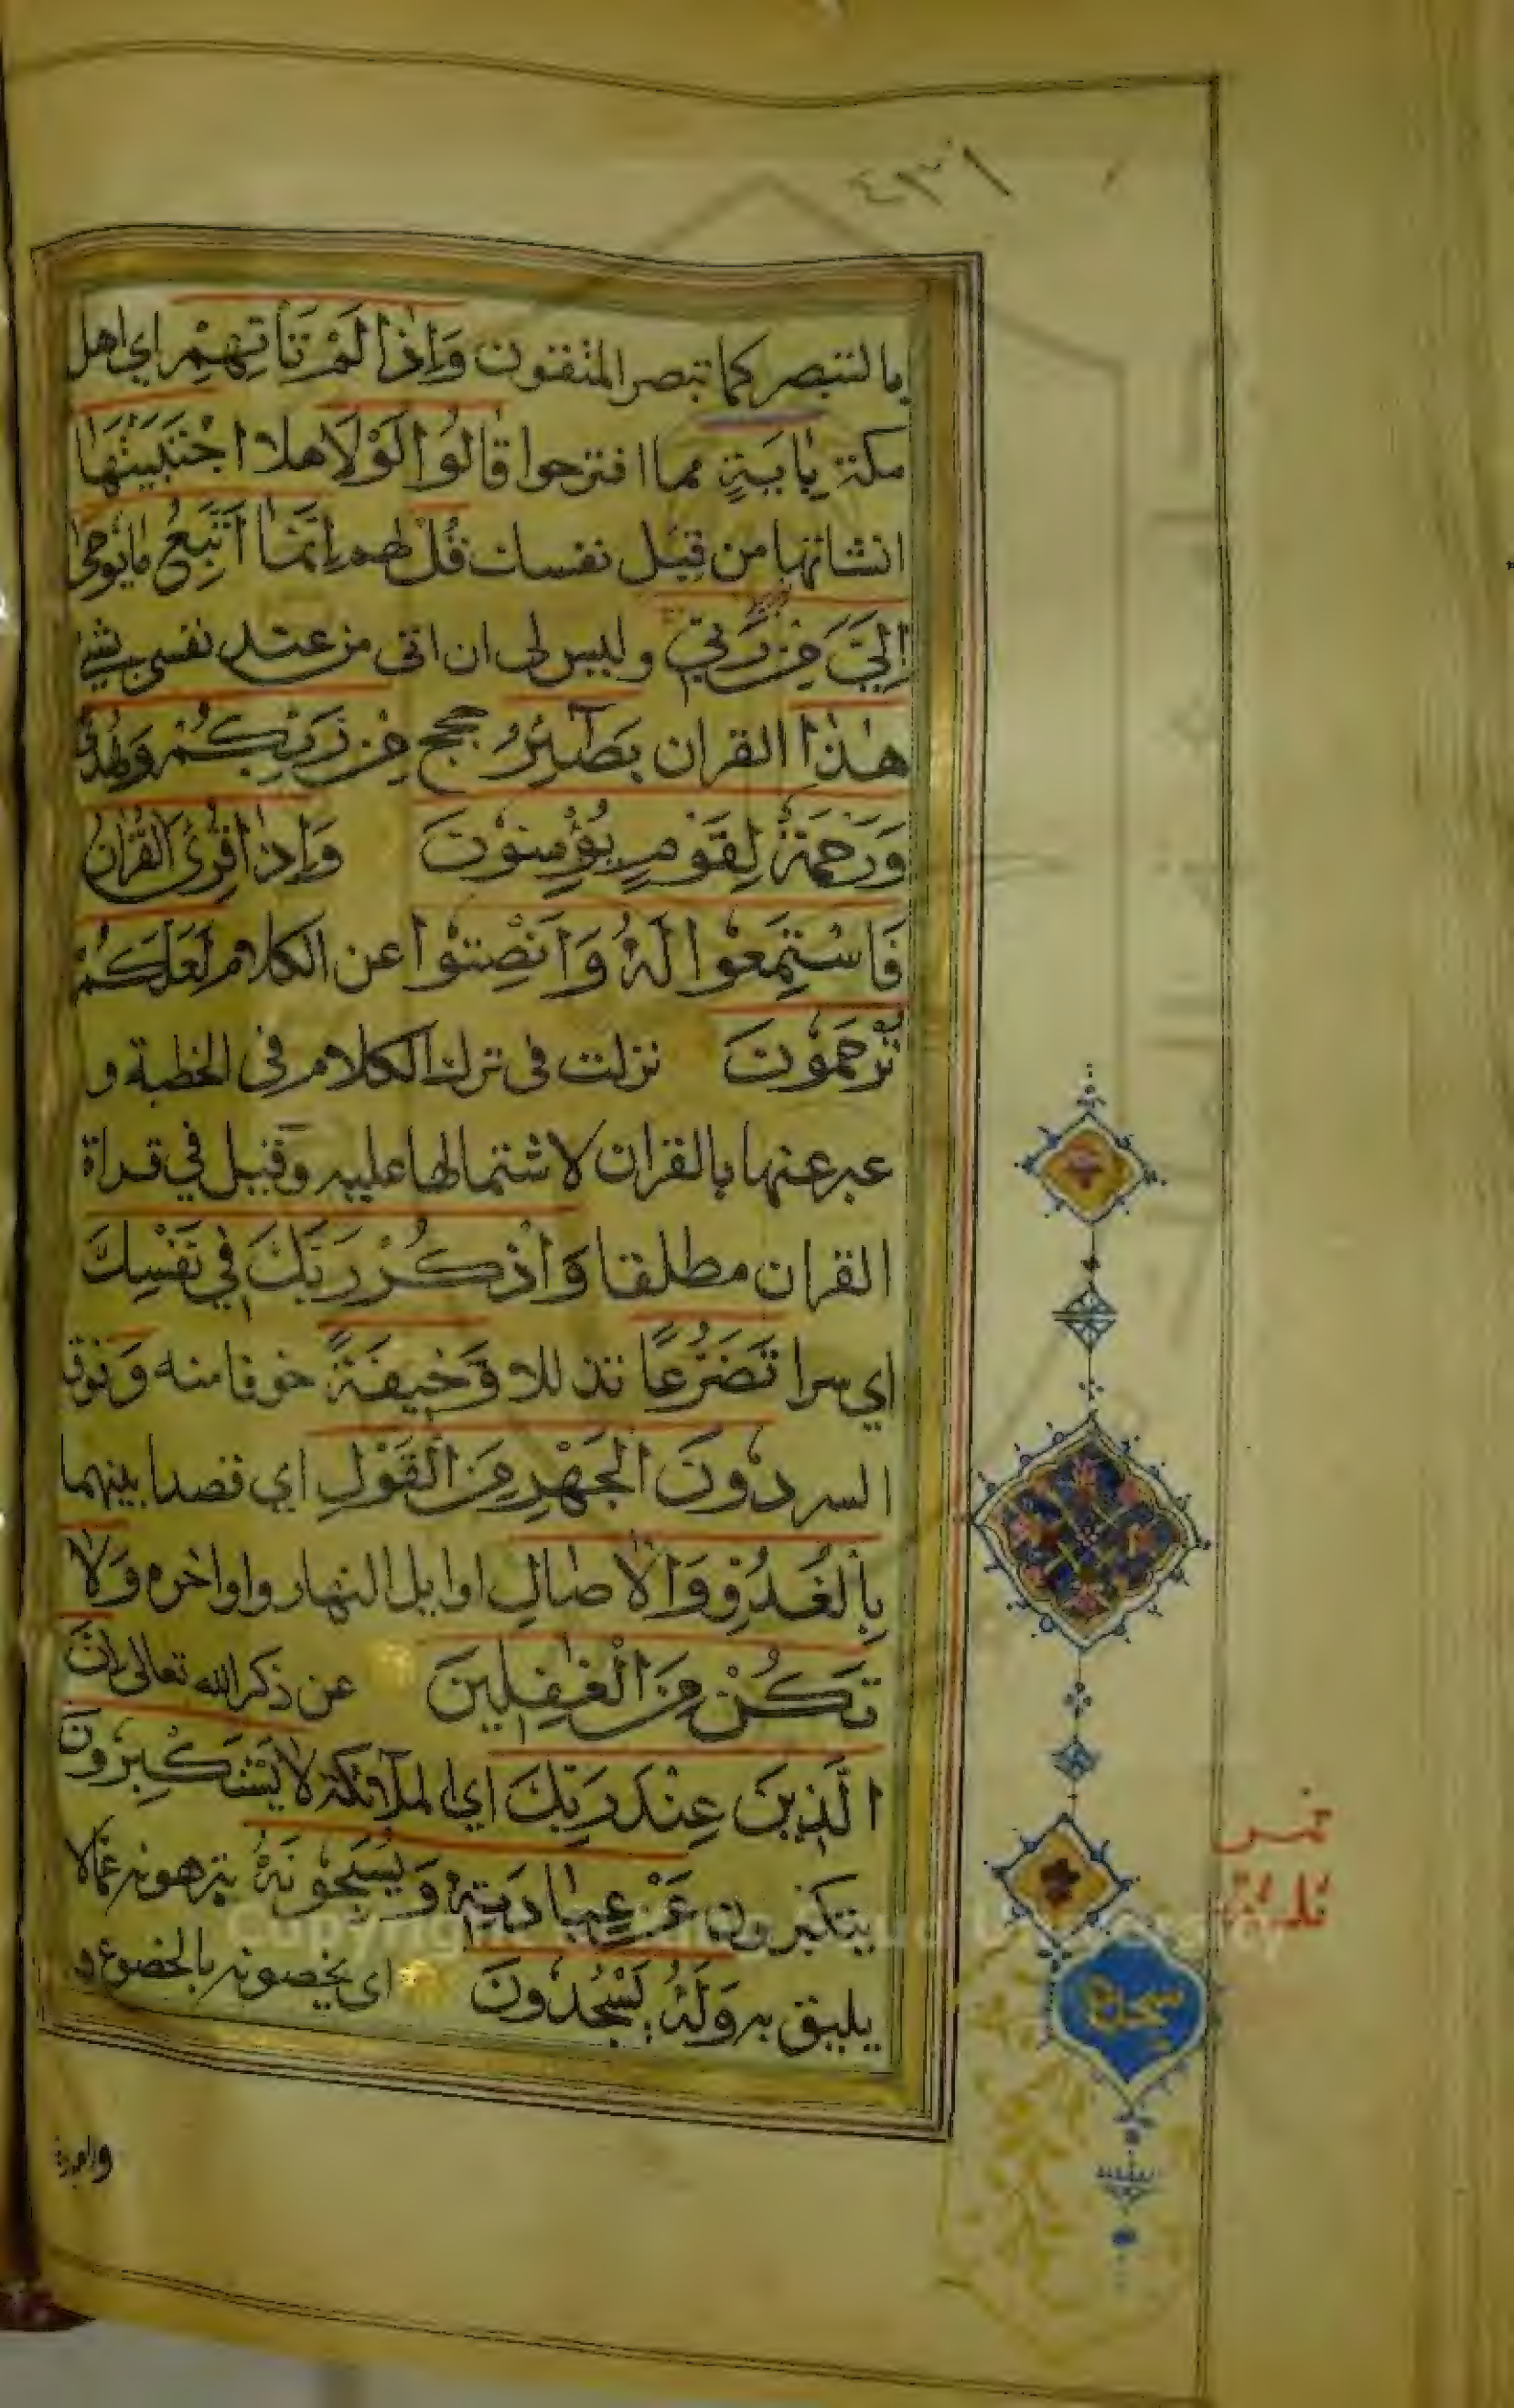 ٤٣١
بالتبصر كما تبصر المتقون وَاِذَا لَمْ تَأْتِهِمْ اي اهل
مكة بِاٰيَةٍ مما اقترحوا قَالُوا لَوْلَا هلا اجْتَبَيْتَهَا
انشاتها من قِبَل نفسك قُلْ لهم اِنَّمَا اَتَّبِعُ مَا يُوحٰى
اِلَيَّ مِنْ رَبِّي وليس لى ان اتى من عند نفسى بشئ
هٰذَا القران بَصَائِرُ حجج مِنْ رَبِّكُمْ وَهُدًى
وَرَحْمَةٌ لِقَوْمٍ يُؤْمِنُونَ وَاِذَا قُرِئَ الْقُرْاٰنُ
فَاسْتَمِعُوا لَهُ وَاَنْصِتُوا عن الكلام لَعَلَّكُمْ
تُرْحَمُونَ نزلت فى ترك الكلام فى الخطبة و
عبر عنها بالقران لاشتمالها عليه وقيل في قراة
القران مطلقا وَاذْكُرْ رَبَّكَ فِي نَفْسِكَ
اي سرا تَضَرُّعًا تذللا وَخِيفَةً خوفا منه وَفوق
السر دُونَ الْجَهْرِ مِنَ الْقَوْلِ اي قصدا بينهما
بِالْغُدُوِّ وَالْاٰصَالِ اوايل النهار واواخره وَلَا
تَكُنْ مِنَ الْغٰفِلِينَ عن ذكر الله تعالى اِنَّ
الَّذِينَ عِنْدَ رَبِّكَ اي الملائكة لَا يَسْتَكْبِرُونَ
يتكبرون عَنْ عِبَادَتِهٖ وَيُسَبِّحُونَهُ ينزهونه عما لا
يليق به وَلَهُ يَسْجُدُونَ اى يخصونه بالخضوع و
سجدة